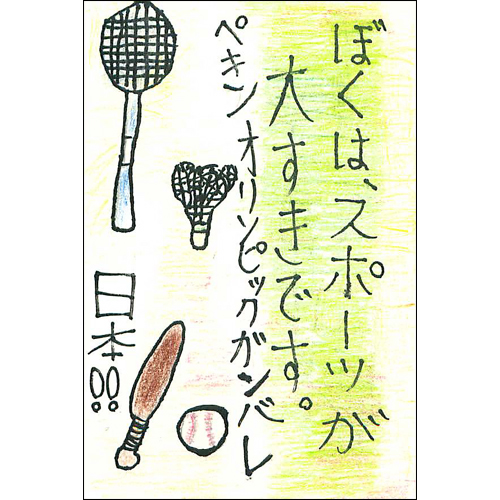 ぼくは、スポーツが
大すきです。
ペキンオリンピックガンバレ
日本!!